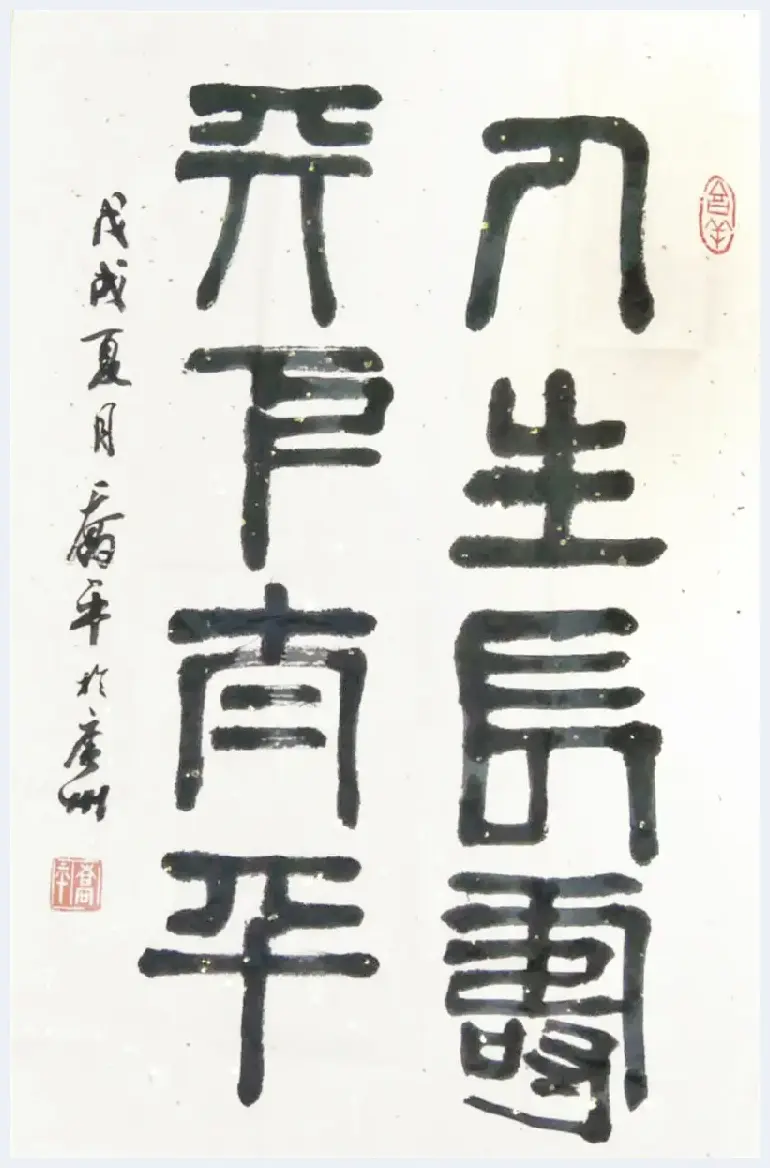 人生長壽
天下太平
戊戌夏月喬平於廣州
喬平